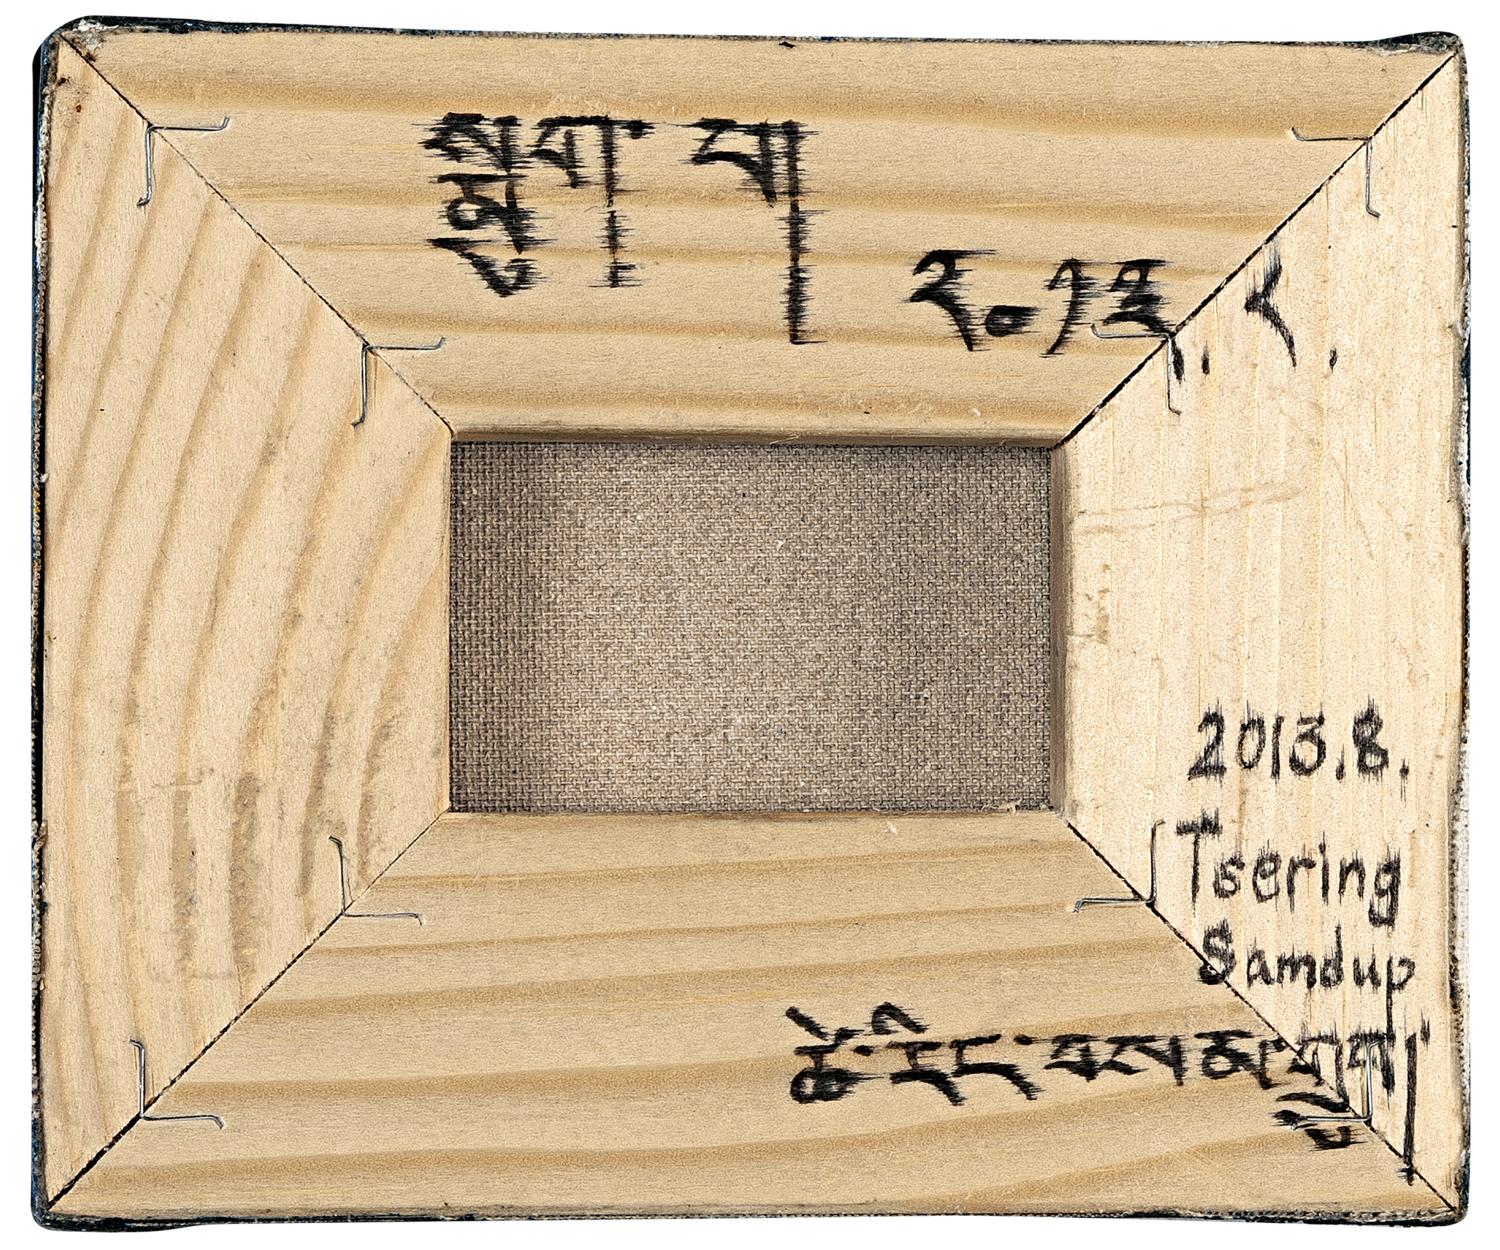 སྨུག་པ།
༢༠༡༣.༨.
2013.8.
Tsering
Samdup
ཚེ་རིང་བསམ་གྲུབ།